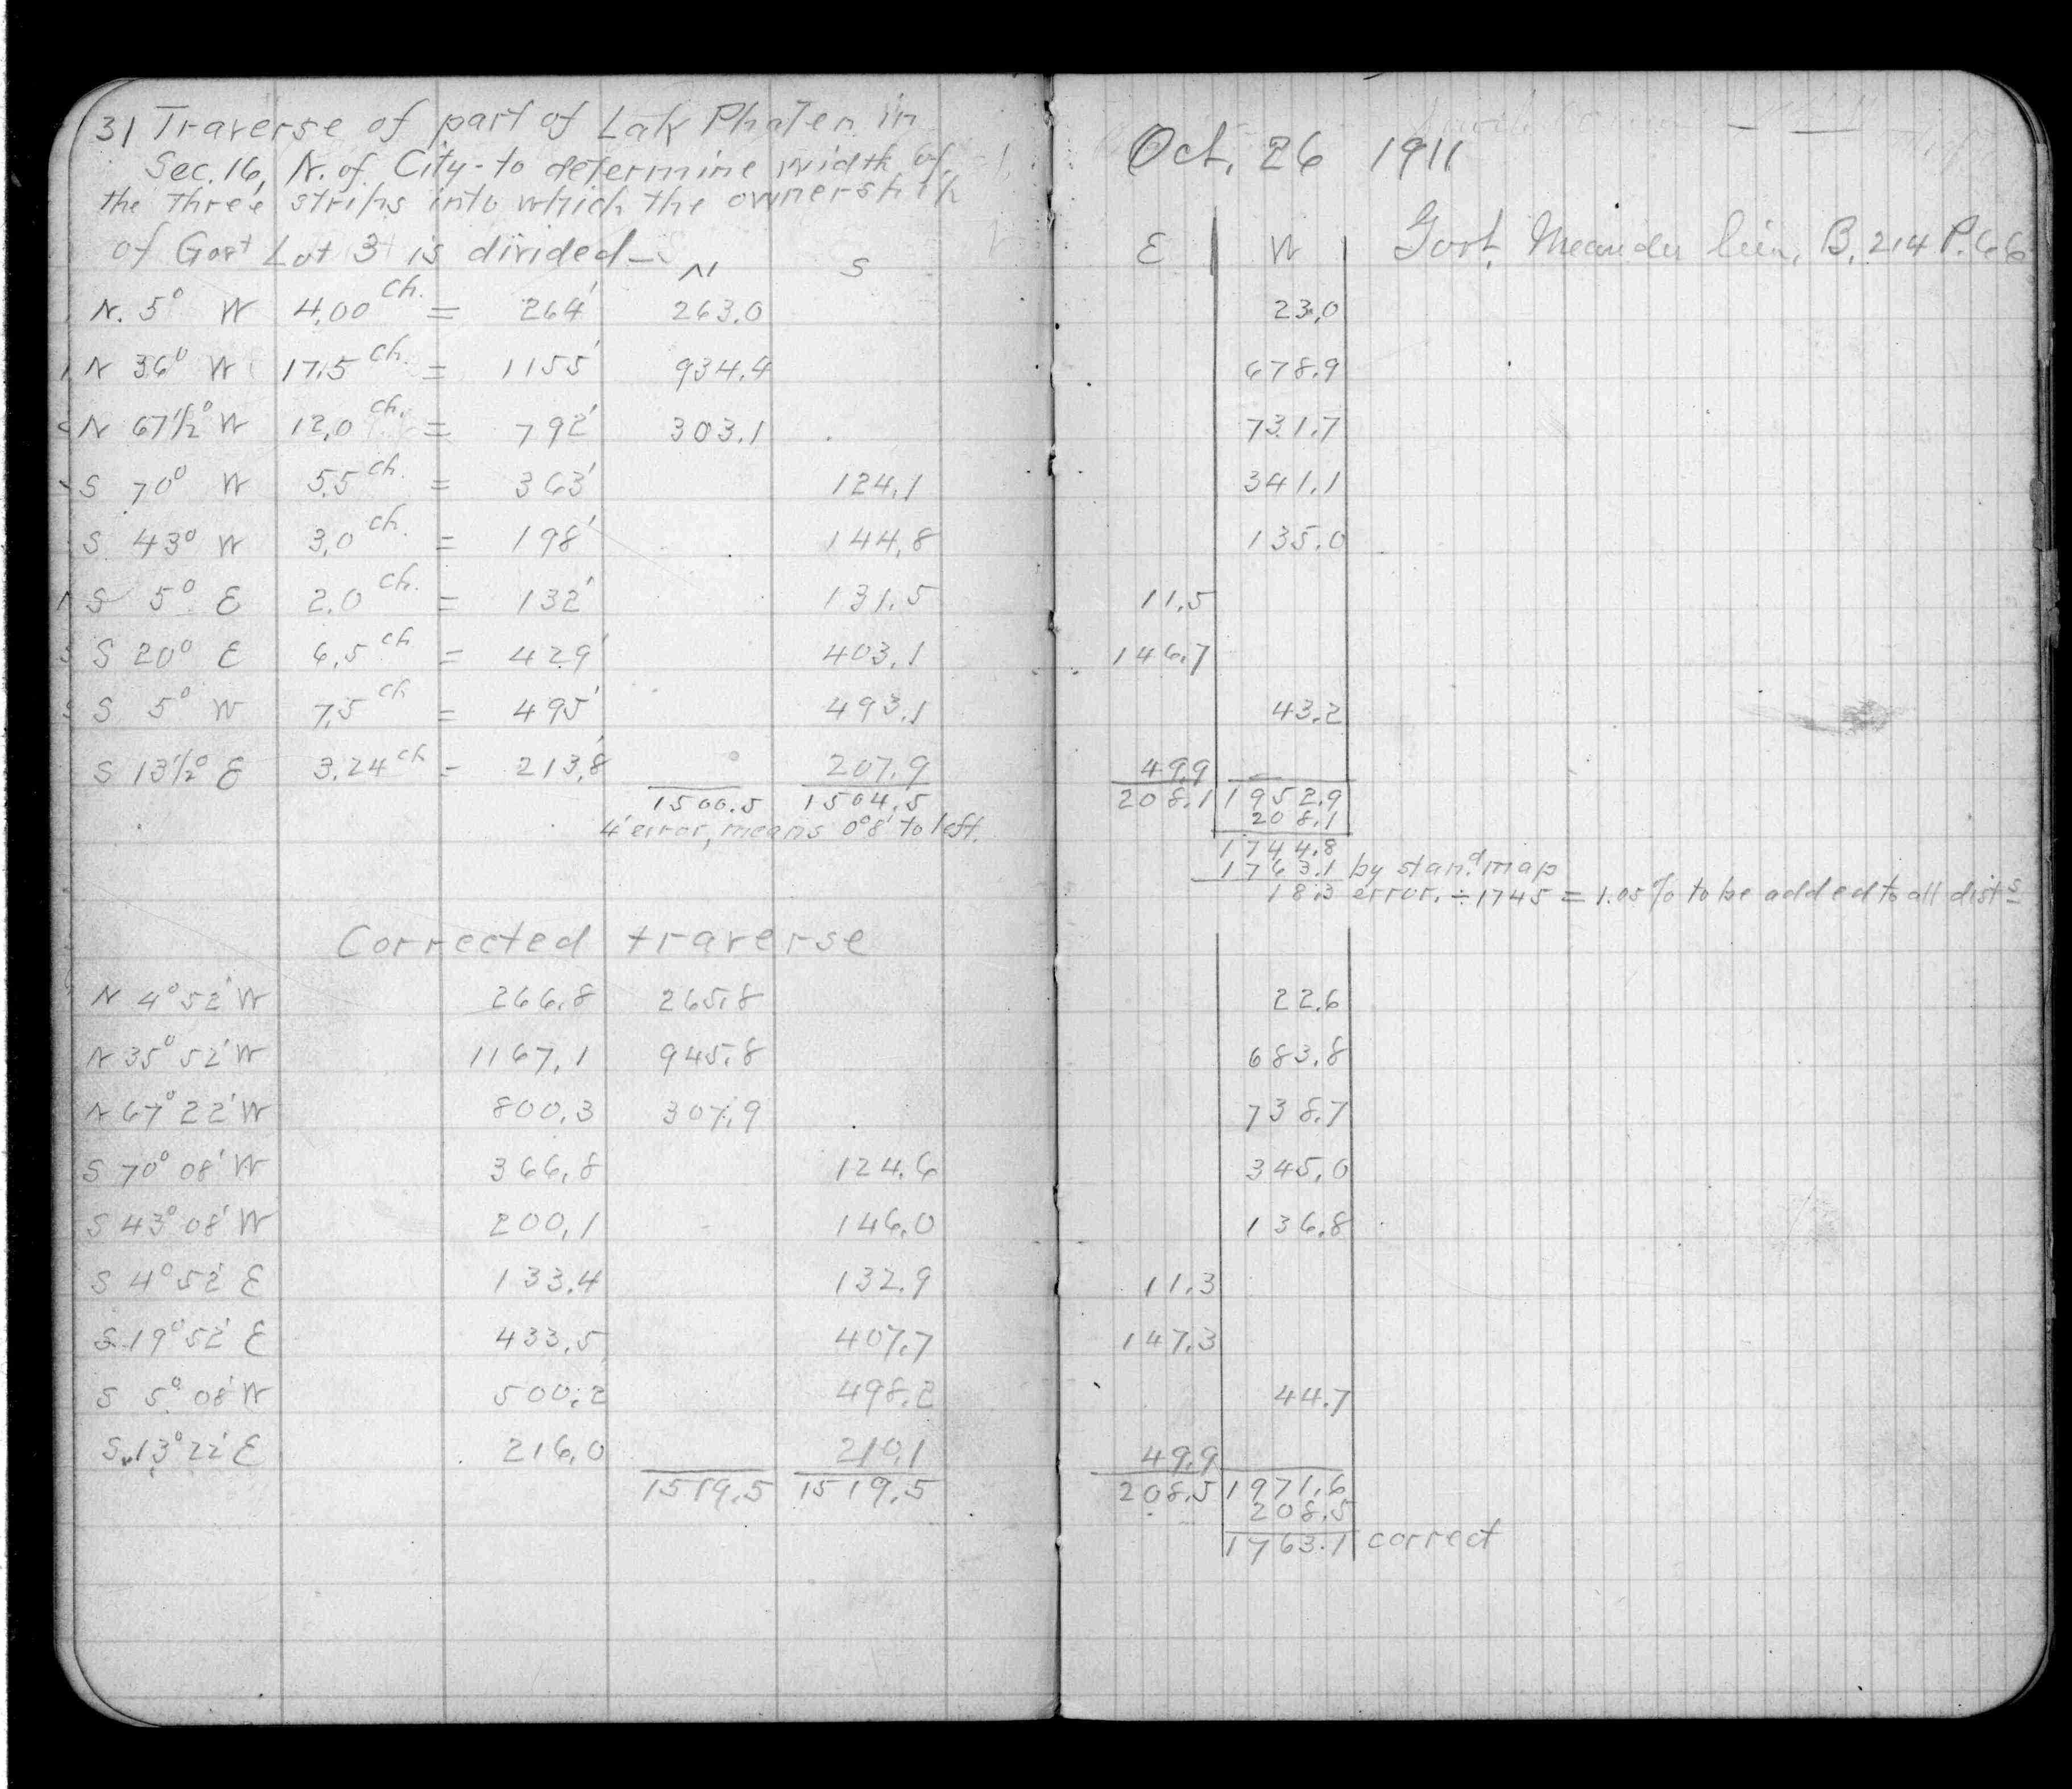 31 Traverse of part of Lak Phalen in
Sec. 16, N. of City - to determine width of
the three strips into which the ownership
of Govt Lot 3 is divided —
N S
N. 5° W 4.00 ch. = 264' 263.0
N 36° W 17.5 ch. = 1155' 934.4
N 67 1/2° W 12.0 ch. = 792' 303.1
S 70° W 5.5 ch. = 363' 124.1
S. 43° W 3.0 ch. = 198' 144.8
S 5° E 2.0 ch. = 132' 131.5
S 20° E 6.5 ch = 429' 403.1
S 5° W 7.5 ch = 495' 493.1
S 13 1/2° E 3.24 ch = 213.8' 207.9
1500.5 1504.5
4' error, means 0°8' to left.
Corrected traverse
N 4° 52' W 266.8 265.8
N 35° 52' W 1167.1 945.8
N 67° 22' W 800.3 307.9
S 70° 08' W 366.8 124.6
S 43° 08' W 200.1 146.0
S 4° 52' E 133.4 132.9
S 19° 52' E 433.5 407.7
S 5° 08' W 500.2 498.2
S. 13° 22' E 216.0 210.1
1519.5 1519.5
Oct. 26 1911
E W Govt. Meander line, B. 214 P. 66
23.0
678.9
731.7
341.1
135.0
11.5
146.7
43.2
49.9
208.1 1952.9
208.1
1744.8
1763.1 by stand map
18.3 error. ÷ 1745 = 1.05% to be added to all dists
22.6
683.8
738.7
345.0
136.8
11.3
147.3
44.7
49.9
208.5 1971.6
208.5
1763.1 correct